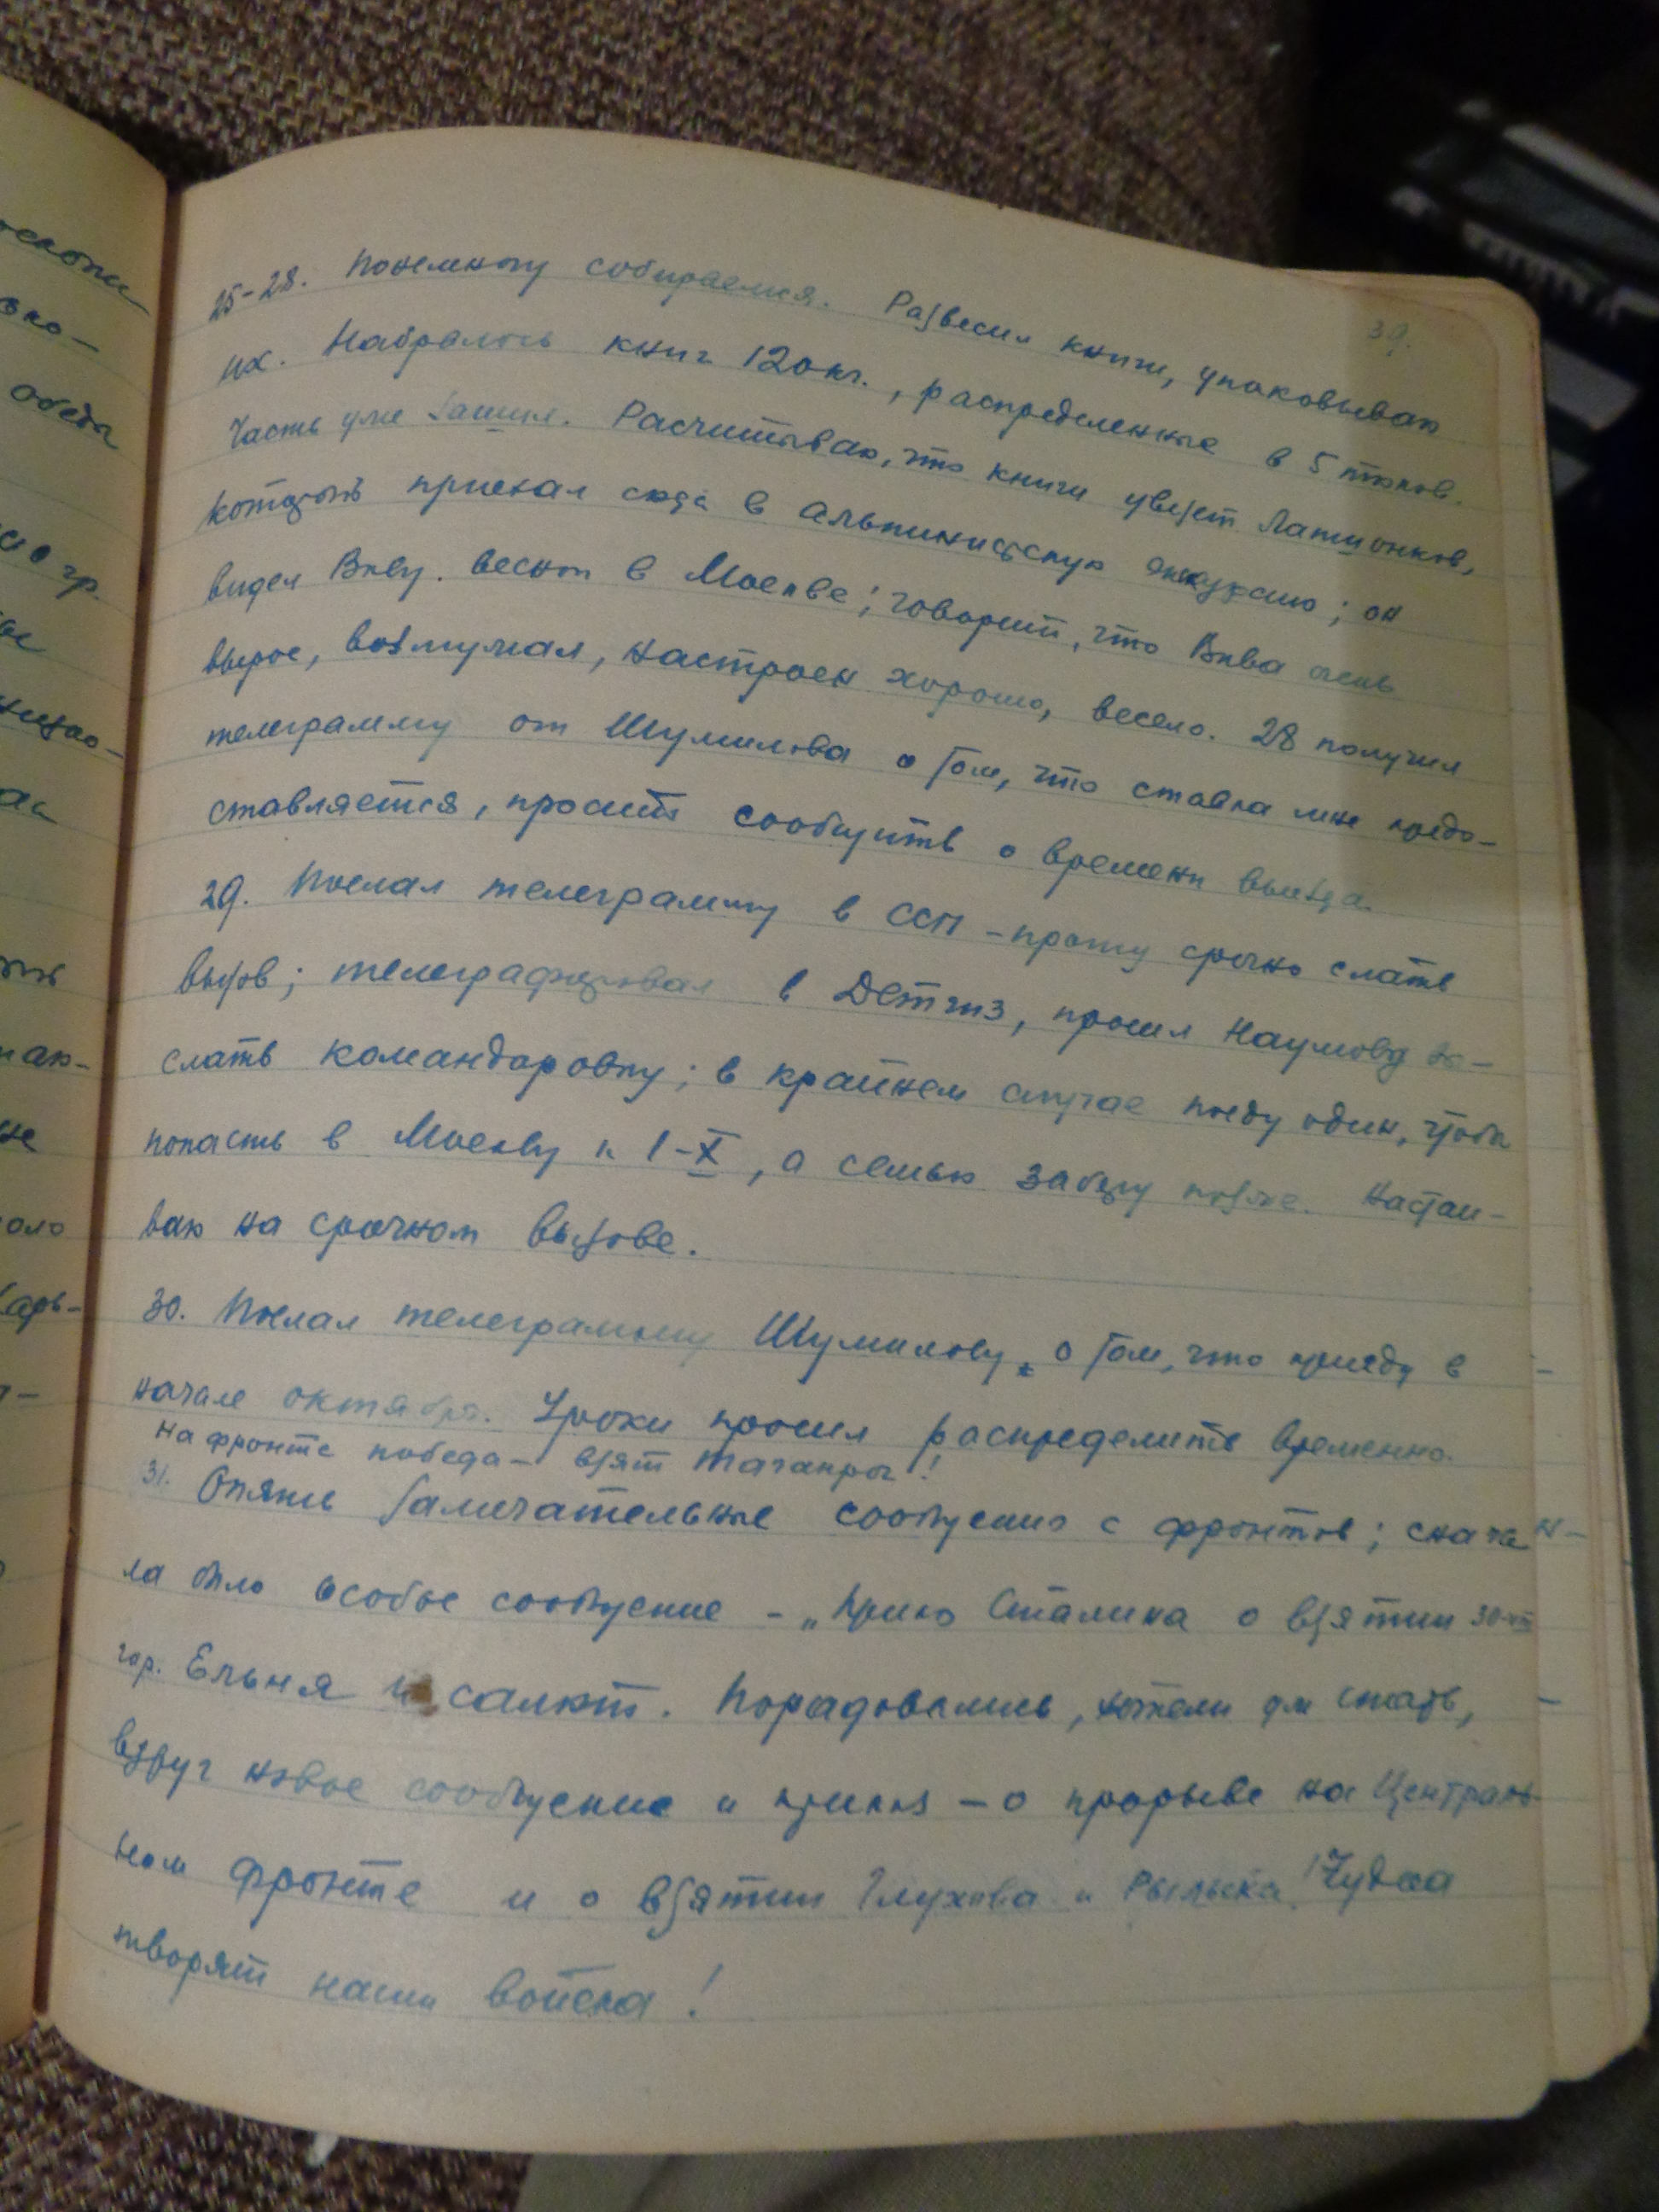 39.
25-28. Понемногу собираемся. Развесил книги, упаковываю
их. Набралось книг 120 кг., распределенные в 5 тюков.
Часть уже зашил. Расчитываю, что книги увезет Латшонков,
который приехал сюда в альпинистскую экскурсию; он
видел Виву весной в Москве; говорит, что Вива очень
вырос, возмужал, настроен хорошо, весело. 28 получил
телеграмму от Шумилова о том, что ставка мне предо-
ставляется, просит сообщить о времени выезда.
29. Послал телеграмму в ССП - прошу срочно слать
вызов; телеграфировал в Детгиз, просил Наумову
слать командировку; в крайнем случае поеду один, чтобы
попасть в Москву к 1-X, а семью заберу позже. Настаи-
ваю на срочном вызове.
30. Послал телеграмму Шумилову о том, что приеду в
начале октября. Уроки просил распределить временно.
На фронте победа - взят Таганрог!
31. Опять замечательные сообщения с фронтов; снача
ла было особое сообщение - „Приказ Сталина о взятии 30-го
гор. Ельня и салют. Порадовались, хотели уж спать,
вдруг новое сообщение и приказ - о прорыве на Централь-
ном фронте и о взятии Глухова и Рыльска! Чудеса
творят наши войска!
обеда